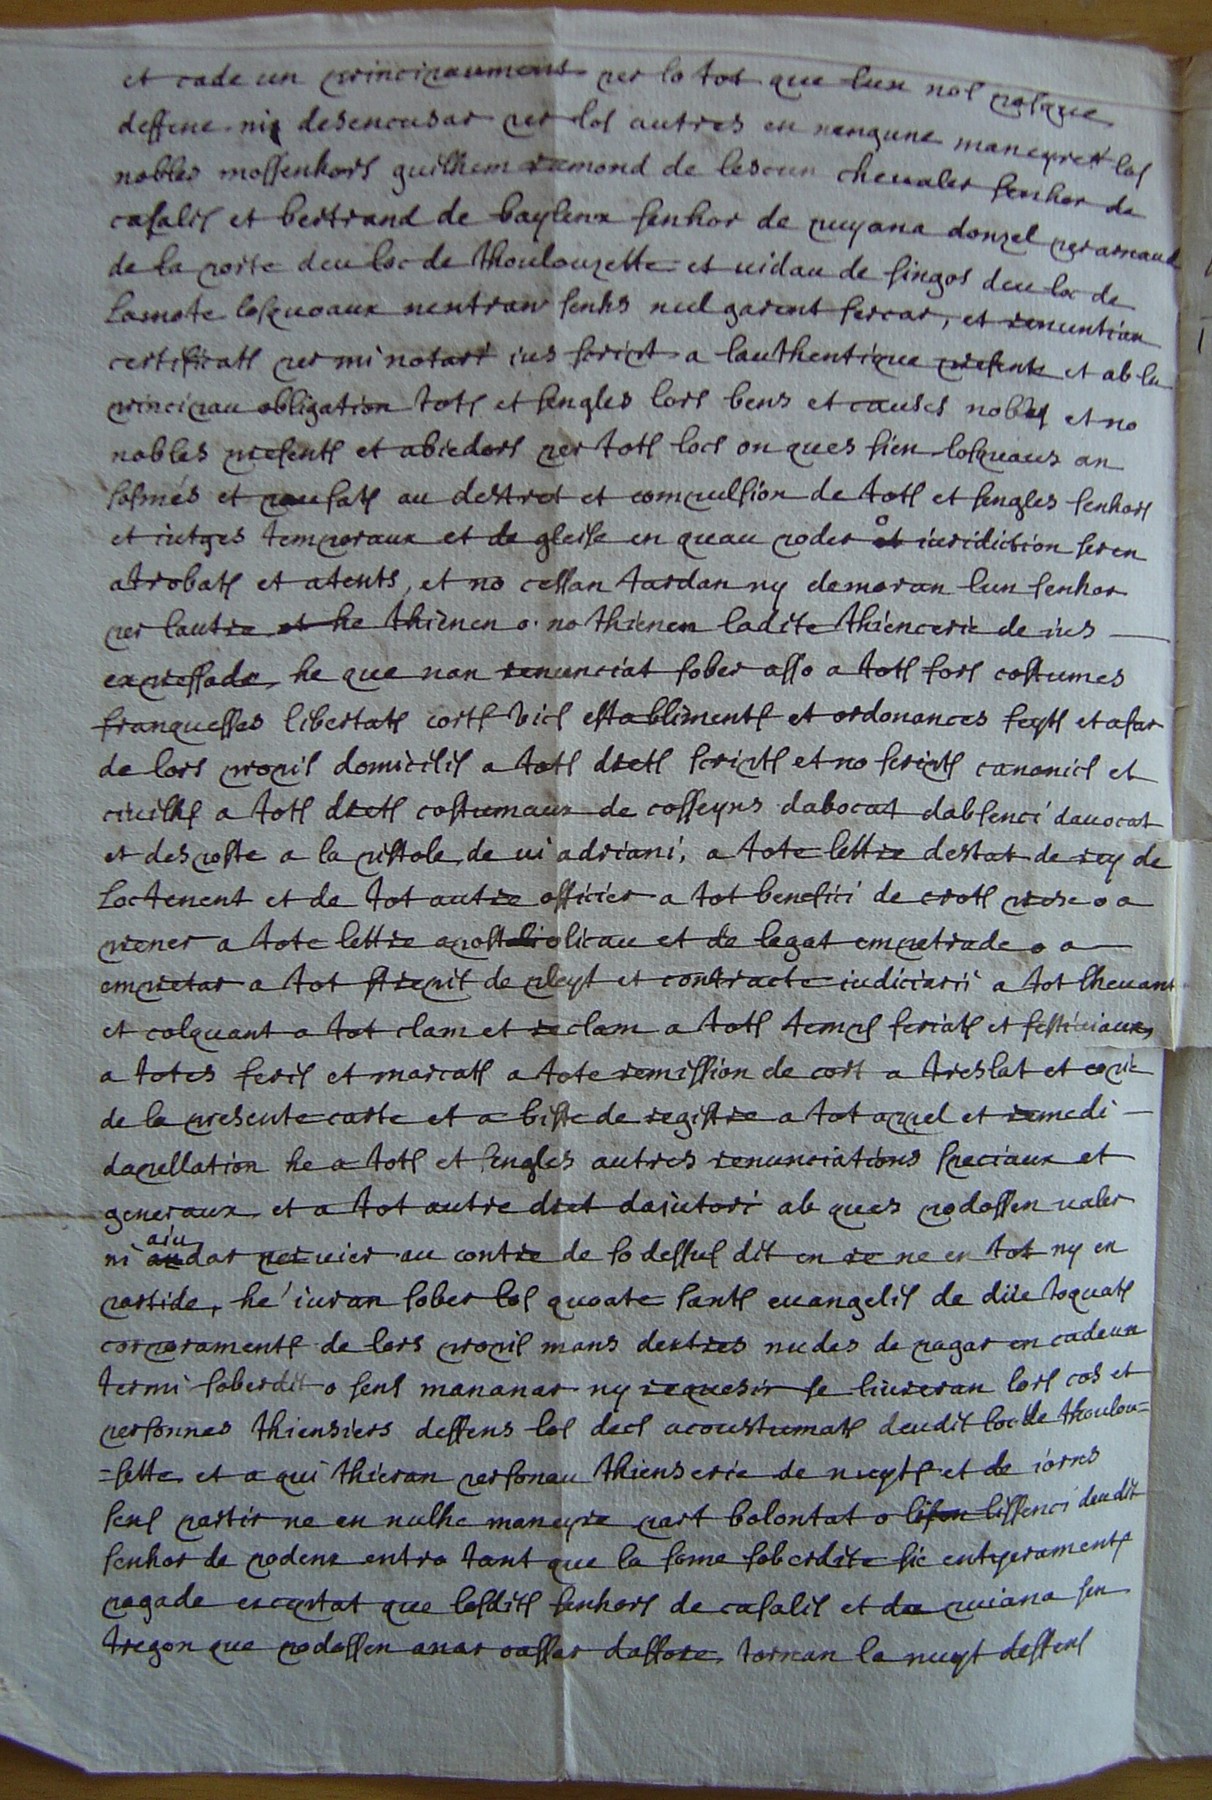 et cade un principaument per lo tot que lun nos posque
deffene ni desencusar per los autres en nengune maneyre los
nobles mossenhors guilhem ramond de lescun chevaler senhor de
casalis et bertrand de baylenx senhor de puyana donzel perarnaud
de la porte deu loc de thoulouzette et vidau de singos deu loc de
lamote losquoaux nentran senhs nul garent sercar, et renuntian
certificats per mi notari ius script a lauthentique presente et ab la
principau obligation tots et sengles lors bens et causes nobles et no
nobles presents et abiedors per tots locs on ques sien losquaus an
sosmes et pausats au destret et compulsion de tots et sengles senhors
et iutges temporaux et de gleise en quau poder et iuridiction seren
atrobats et atents, et no cessan tardan ny demoran lun senhor
per lautre et he thienen o no thienen ladite thiencerie de ius
expressade, he que nan renunciat sober asso a tots fors costumes
franquesses libertats corts vics establiments et ordonances feyts et afar
de lors propis domicilis a tots drets scripts et no scripts canonics et
civilhs a tots drets costumaux de cosseyns dabocat dabsenci davocat
et desposte a la pistole de vi adriani, a tote lettre destat de rey de
Loctenent et de tot autre officier a tot benefici de crots prese o a
prener a tote lettre apostolicau et de legat empetrade o a
empretar a tot strepit de pleyt et contracte iudiciarii a tot lhevant
et colquant a tot clam et reclam a tots temps feriats et festiviaux
a totes feris et marcats a tote remission de cort a treslat et copie
de la presente carte et a biste de registre a tot appel et remedi
dapellation he a tots et sengles autres renunciations speciaux et
generaux et a tot autre dret daiutori ab ques podossen valer
ni aiudar per vier au contre de so dessus dit en re ne en tot ny en
partide, he iuran sober los quoate sants evangelis de diie toquats
corporaments de lors propis mans dextres nudes de pagar en cadeun
termi soberdit o sens mananar ny requesir se liureran lors cos et
personnes thiensiers deffens los decs acoustumats deudit loc de thoulou=
=sette et aqui thieran personau thienserie de nuyts et de iorns
sens partir ne en nulhe maneyre part bolontat o lissenci deudit
senhor de podenx entro tant que la some soberdite sie entyeraments
pagade exceptat que losdits senhors de casalis et de puiana sen
tregon que podossen anar passar dassore tornan la nuyt deffens